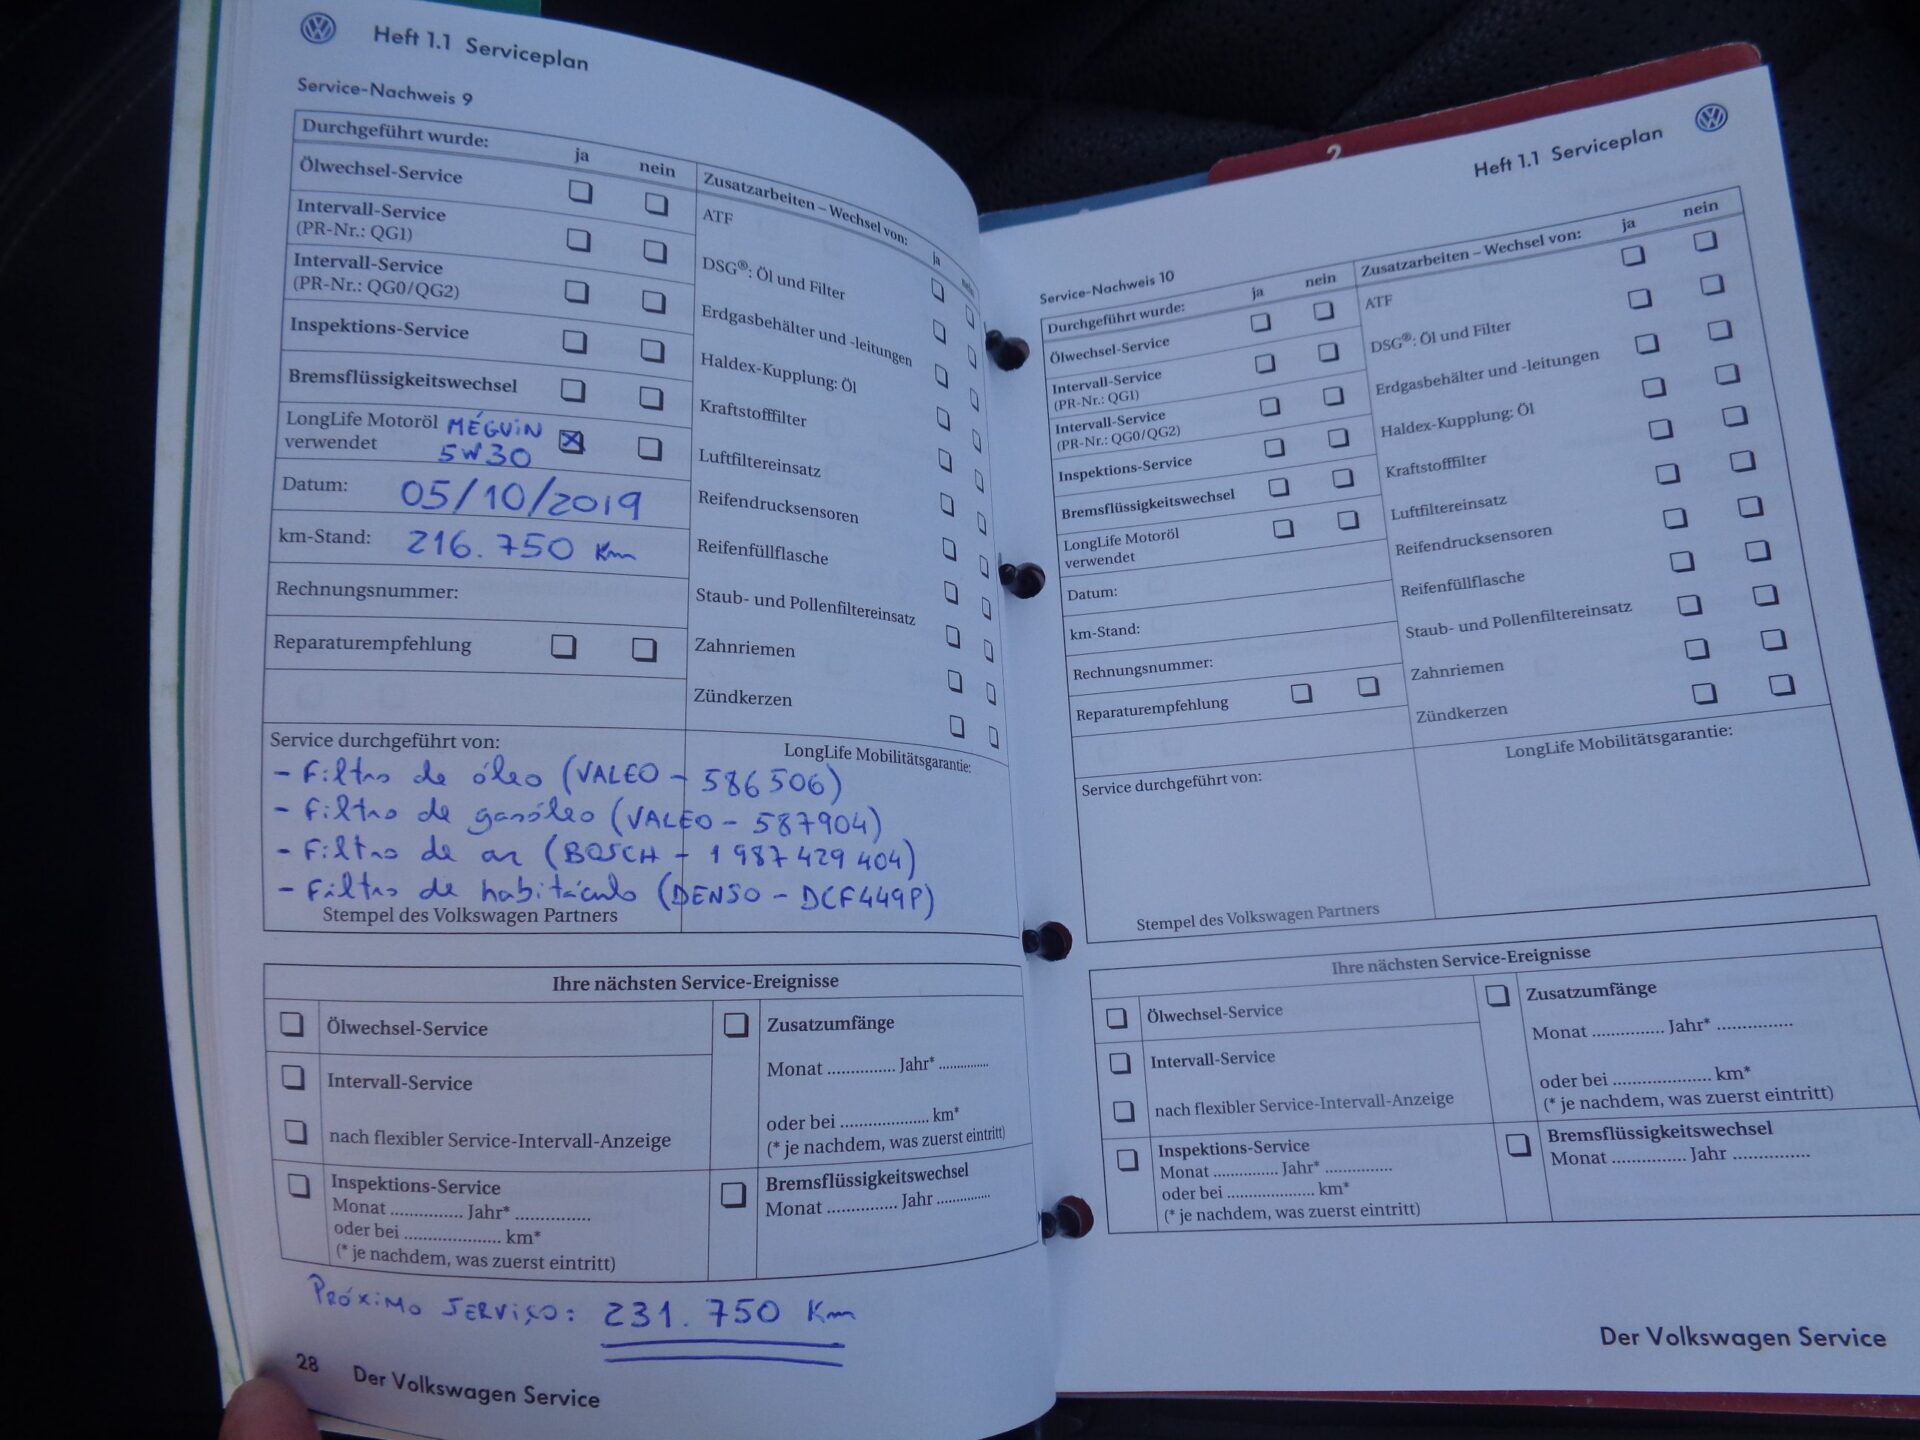 Heft 1.1 Serviceplan
Service-Nachweis 9
Durchgeführt wurde: ja nein
Ölwechsel-Service
Intervall-Service
(PR-Nr.: QG1)
Intervall-Service
(PR-Nr.: QG0/QG2)
Inspektions-Service
Bremsflüssigkeitswechsel
LongLife Motoröl MÉGUIN
verwendet 5W30
Datum: 05/10/2019
km-Stand: 216.750 Km
Rechnungsnummer:
Reparaturempfehlung
Zusatzarbeiten – Wechsel von: ja nein
ATF
DSG®: Öl und Filter
Erdgasbehälter und -leitungen
Haldex-Kupplung: Öl
Kraftstofffilter
Luftfiltereinsatz
Reifendrucksensoren
Reifenfüllflasche
Staub- und Pollenfiltereinsatz
Zahnriemen
Zündkerzen
Service durchgeführt von:
LongLife Mobilitätsgarantie:
- Filtro de óleo (VALEO - 586506)
- Filtro de gasóleo (VALEO - 587904)
- Filtro de ar (BOSCH - 1 987 429 404)
- Filtro de habitáculo (DENSO - DCF449P)
Stempel des Volkswagen Partners
Ihre nächsten Service-Ereignisse
Ölwechsel-Service
Intervall-Service
nach flexibler Service-Intervall-Anzeige
Inspektions-Service
Monat ............... Jahr* ...............
oder bei .................... km*
(* je nachdem, was zuerst eintritt)
Zusatzumfänge
Monat .............. Jahr* ..............
oder bei .................. km*
(* je nachdem, was zuerst eintritt)
Bremsflüssigkeitswechsel
Monat .............. Jahr ..............
PRÓXIMO SERVIÇO: 231.750 Km
28 Der Volkswagen Service
2
Heft 1.1 Serviceplan
Service-Nachweis 10
Durchgeführt wurde: ja nein
Ölwechsel-Service
Intervall-Service
(PR-Nr.: QG1)
Intervall-Service
(PR-Nr.: QG0/QG2)
Inspektions-Service
Bremsflüssigkeitswechsel
LongLife Motoröl
verwendet
Datum:
km-Stand:
Rechnungsnummer:
Reparaturempfehlung
Zusatzarbeiten – Wechsel von: ja nein
ATF
DSG®: Öl und Filter
Erdgasbehälter und -leitungen
Haldex-Kupplung: Öl
Kraftstofffilter
Luftfiltereinsatz
Reifendrucksensoren
Reifenfüllflasche
Staub- und Pollenfiltereinsatz
Zahnriemen
Zündkerzen
Service durchgeführt von:
LongLife Mobilitätsgarantie:
Stempel des Volkswagen Partners
Ihre nächsten Service-Ereignisse
Ölwechsel-Service
Intervall-Service
nach flexibler Service-Intervall-Anzeige
Inspektions-Service
Monat .............. Jahr* ..............
oder bei ................... km*
(* je nachdem, was zuerst eintritt)
Zusatzumfänge
Monat .............. Jahr* ..............
oder bei ................... km*
(* je nachdem, was zuerst eintritt)
Bremsflüssigkeitswechsel
Monat .............. Jahr ..............
Der Volkswagen Service